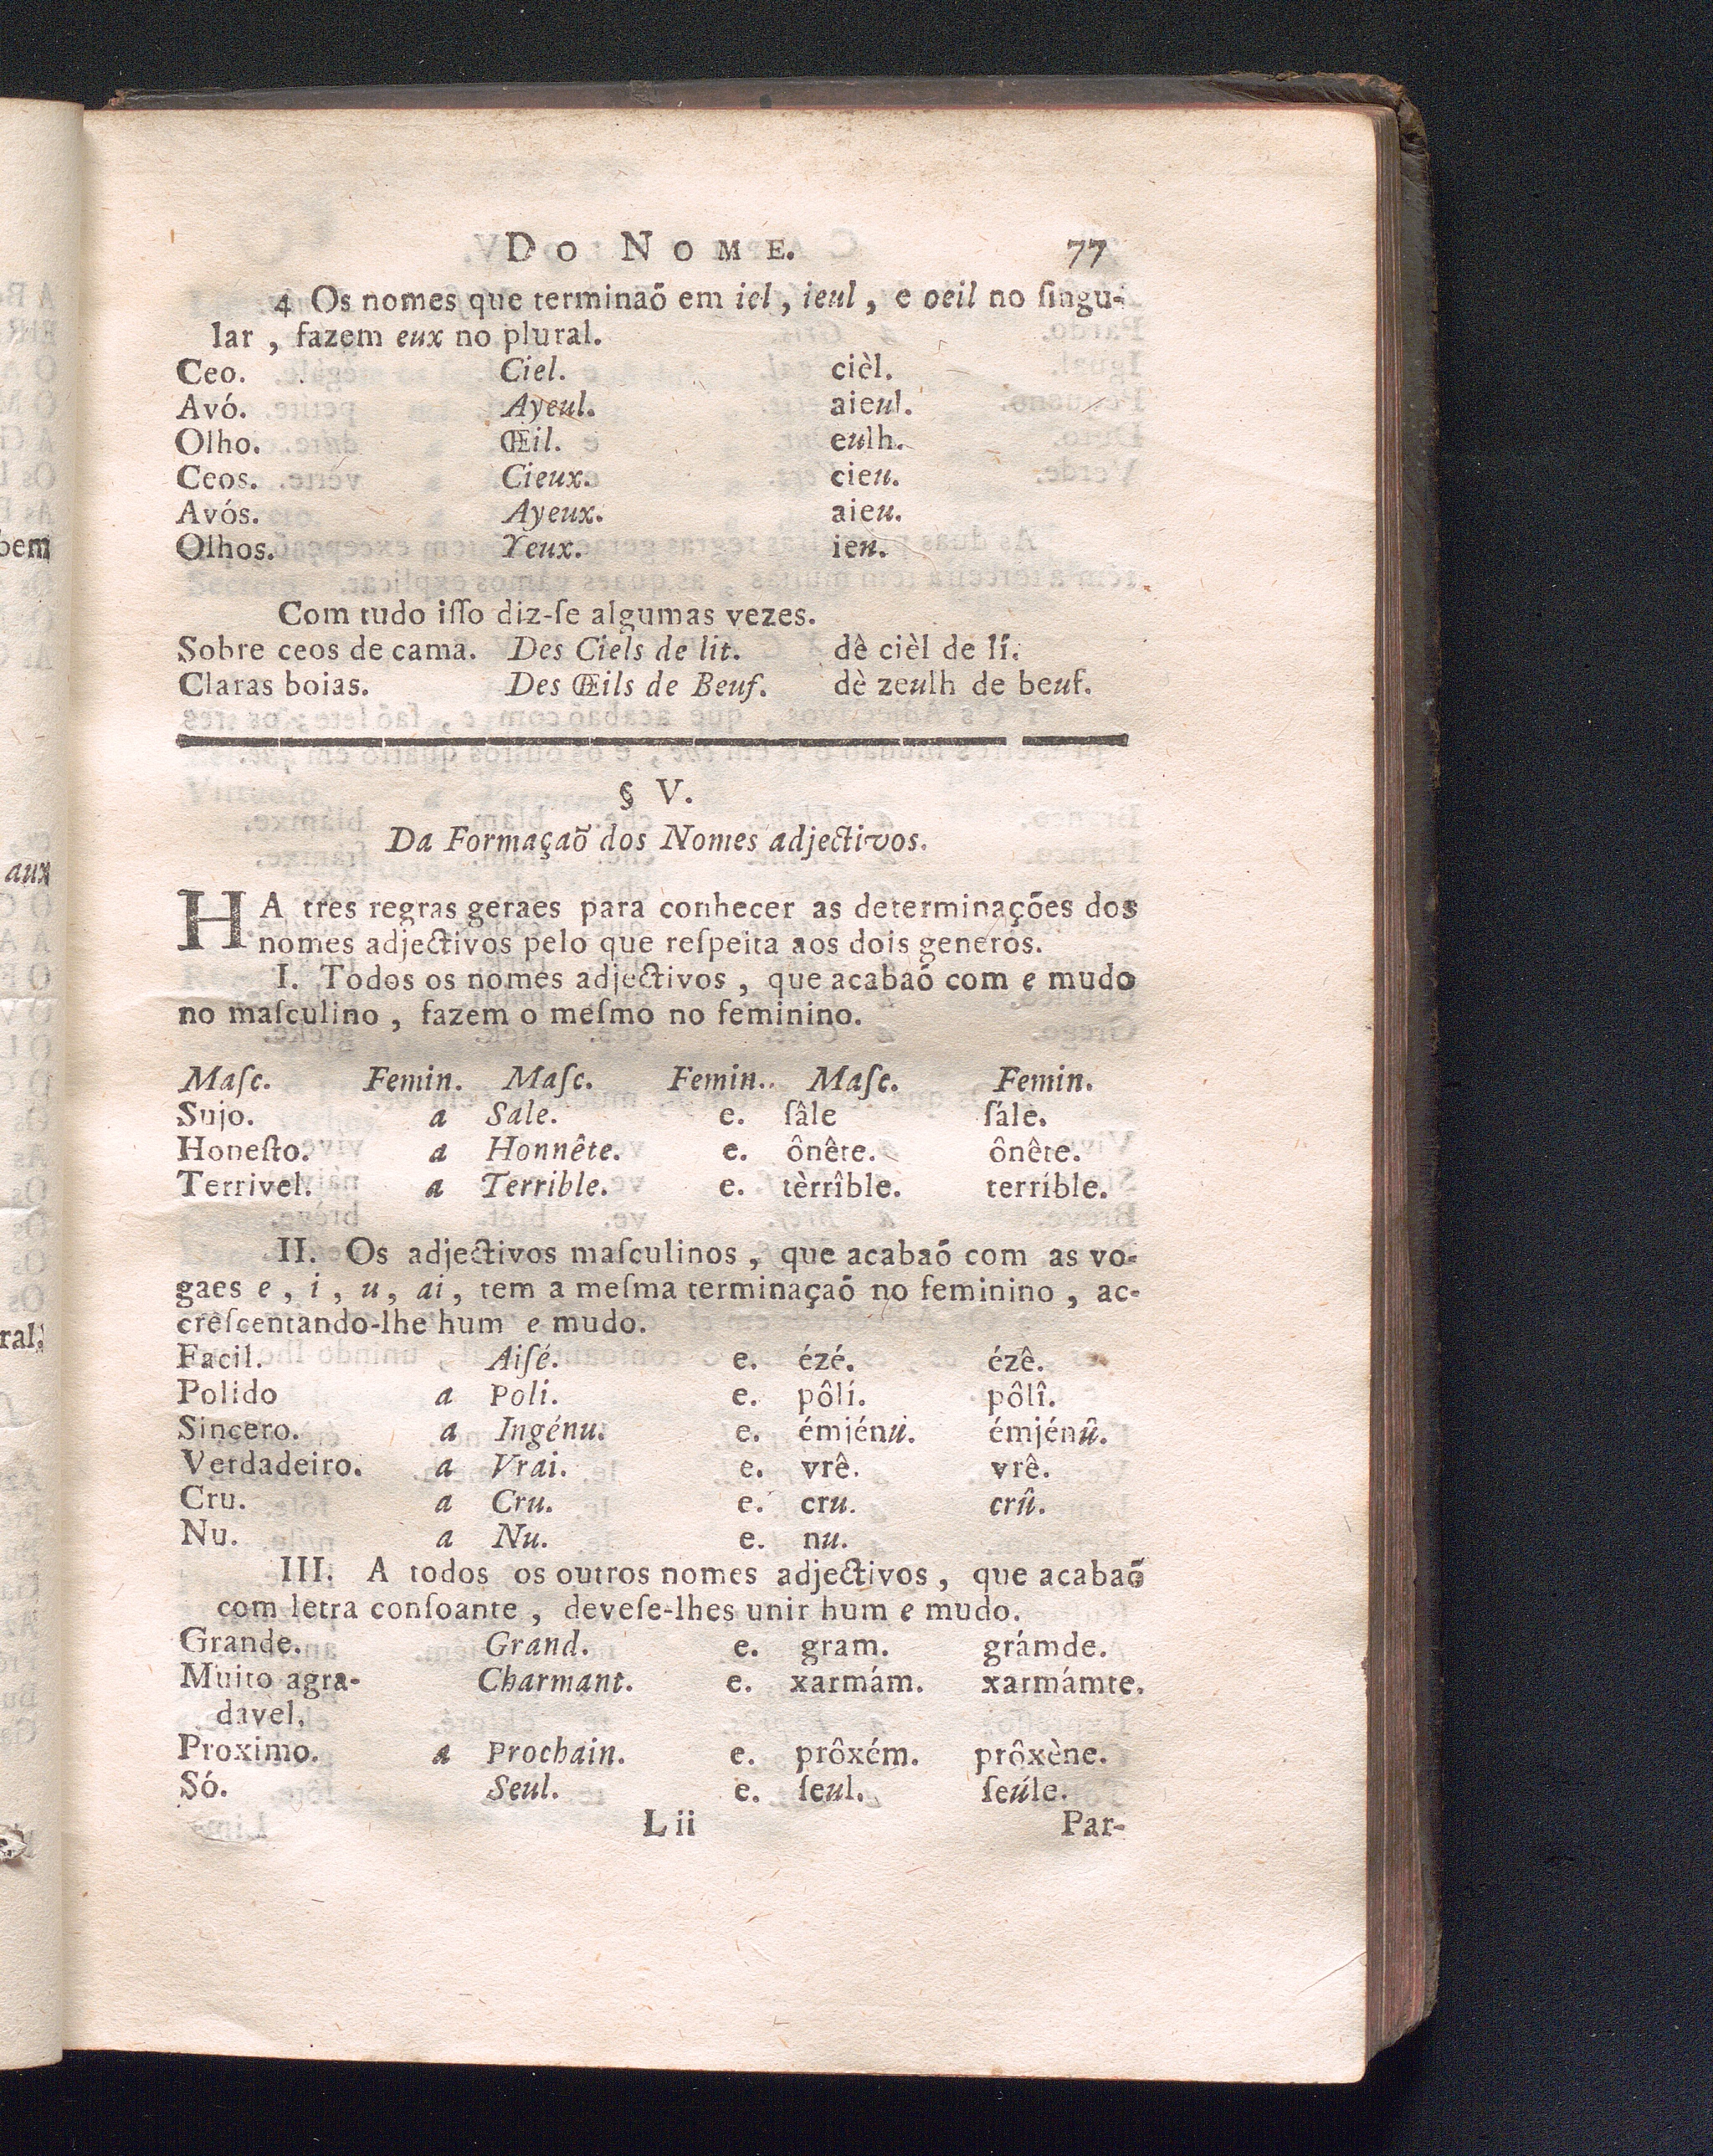 DO NOME. 77
4 Os nomes que terminaõ em iel, ieul, e oeil no ſingu-
lar, fazem eux no plural.
Ceo. Ciel. cièl.
Avó. Ayeul. aieul.
Olho. Œil. eulh.
Ceos. Cieux. cieu.
Avós. Ayeux. aieu.
Olhos. Yeux. ieu.
Com tudo iſſo diz-ſe algumas vezes.
Sobre ceos de cama. Des Ciels de lit. dê cièl de lí.
Claras boias. Des Œils de Beuf. dè zeulh de beuf.
§ V.
Da Formaçaõ dos Nomes adjectivos.
HA tres regras geraes para conhecer as determinações dos
nomes adjectivos pelo que reſpeita aos dois generos.
I. Todos os nomes adjectivos, que acabaõ com e mudo
no maſculino, fazem o meſmo no feminino.
Maſc. Femin. Maſc. Femin. Maſc. Femin.
Sujo. a Sale. e. ſâle ſále.
Honeſto. a Honnête. e. ônête. ônête.
Terrivel. a Terrible. e. tèrrîble. terríble.
II. Os adjectivos maſculinos, que acabaõ com as vo-
gaes e, i, u, ai, tem a meſma terminaçaõ no feminino, ac-
creſcentando-lhe hum e mudo.
Facil. Aiſé. e. ézé. ézê.
Polido a Poli. e. pôlí. pôlî.
Sincero. a Ingénu. e. émjénú. émjénû.
Verdadeiro. a Vrai. e. vrê. vrê.
Cru. a Cru. e. cru. crû.
Nu. a Nu. e. nu.
III. A todos os outros nomes adjectivos, que acabaõ
com letra conſoante, deveſe-lhes unir hum e mudo.
Grande. Grand. e. gram. grámde.
Muito agra- Charmant. e. xarmám. xarmámte.
davel.
Proximo. a Prochain. e. prôxém. prôxène.
Só. Seul. e. ſeul. ſeúle.
L ii Par-
bem
aux
ral.